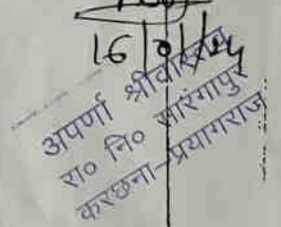 16/01/24
अपर्णा श्रीवास्तव
रा० नि० सारंगापुर
करछना-प्रयागराज